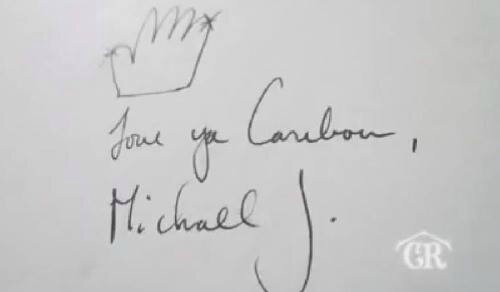 Love ya Caribou,
Michael J.
GR